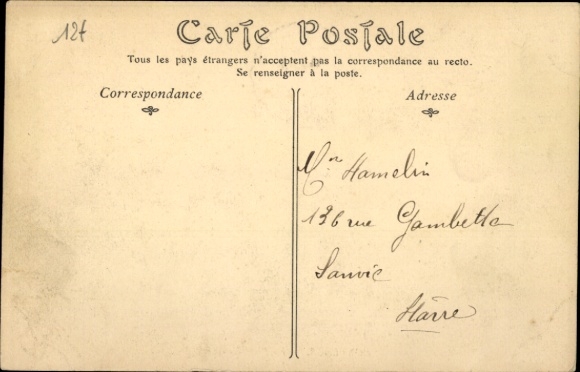 12f
Carte Postale
Tous les pays étrangers n'acceptent pas la correspondance au recto.
Se renseigner à la poste.
Correspondance
Adresse
Hamelin
136 rue Gambetta
Sanvic
Hâvre